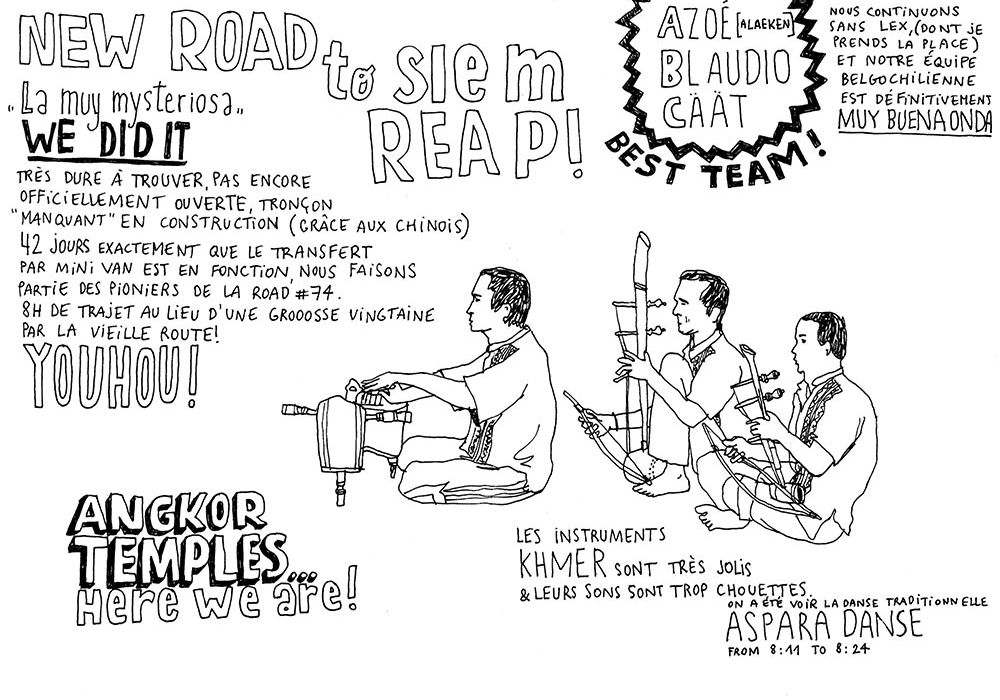 NEW ROAD
to SIem
REAP!
"La muy mysteriosa"
WE DID IT
TRÈS DURE À TROUVER, PAS ENCORE
OFFICIELLEMENT OUVERTE, TRONÇON
"MANQUANT" EN CONSTRUCTION (GRÂCE AUX CHINOIS)
42 JOURS EXACTEMENT QUE LE TRANSFERT
PAR MINI VAN EST EN FONCTION, NOUS FAISONS
PARTIE DES PIONIERS DE LA ROAD #74.
8H DE TRAJET AU LIEU D'UNE GROOOSSE VINGTAINE
PAR LA VIEILLE ROUTE!
YOUHOU!
AZOÉ [ALAEKEN]
BLAUDIO
CÄÄT
BEST TEAM!
NOUS CONTINUONS
SANS LEX, (DONT JE
PRENDS LA PLACE)
ET NOTRE ÉQUIPE
BELGOCHILIENNE
EST DÉFINITIVEMENT
MUY BUENA ONDA
ANGKOR
TEMPLES...
Here we are!
LES INSTRUMENTS
KHMER SONT TRÈS JOLIS
& LEURS SONS SONT TROP CHOUETTES.
ON A ÉTÉ VOIR LA DANSE TRADITIONNELLE
ASPARA DANSE
FROM 8:11 TO 8:24